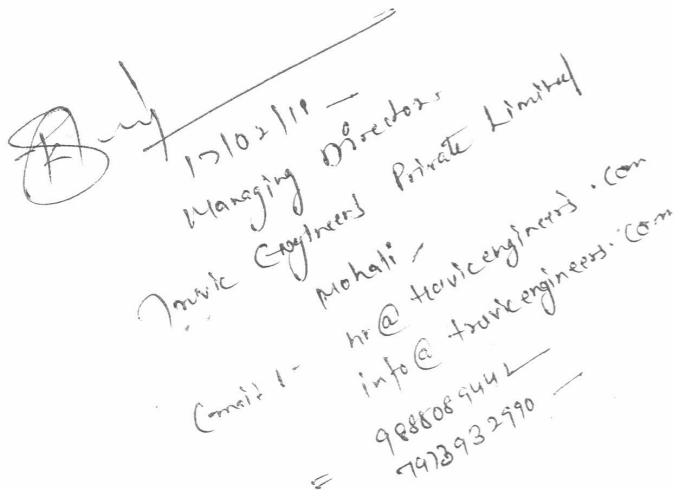 17/02/18
Managing Director
Truvic Engineers Private Limited
Mohali
Email :- hr@truvicengineers.com
info@truvicengineers.com
9888089442
7973932990